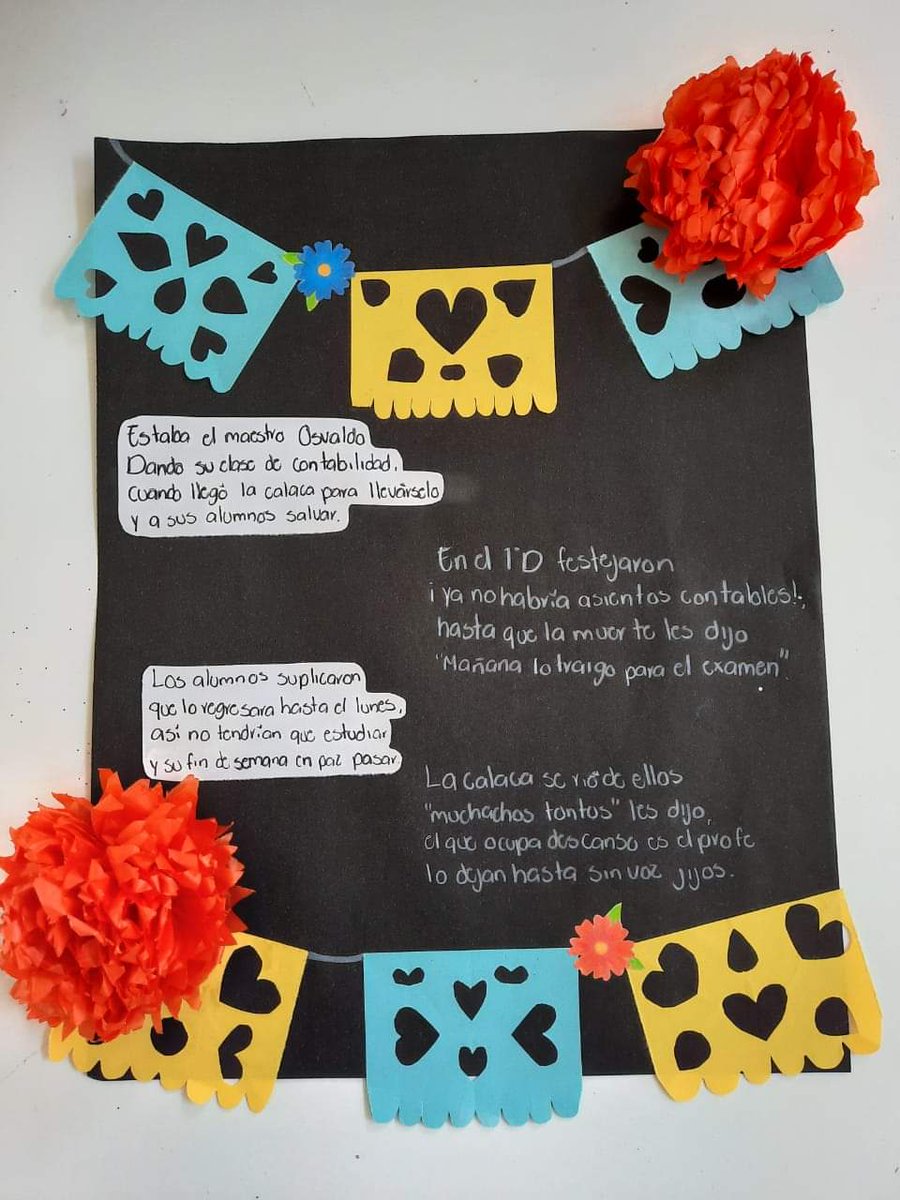 Estaba el maestro Osvaldo
Dando su clase de contabilidad,
cuando llegó la calaca para llevárselo
y a sus alumnos salvar.
En el 1°D festejaron
¡ya no habría asientos contables!,
hasta que la muerte les dijo
"Mañana lo traigo para el examen".
Los alumnos suplicaron
que lo regresara hasta el lunes,
así no tendrían que estudiar
y su fin de semana en paz pasar.
La calaca se rió de ellos
"muchachos tontos" les dijo,
el que ocupa descanso es el profe
lo dejan hasta sin voz jijos.